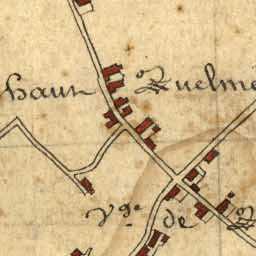 haut Quelm
Vge de